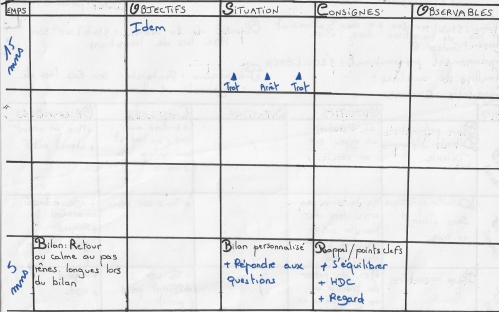 TEMPS OBJECTIFS SITUATION CONSIGNES OBSERVABLES
15 mns
Idem
Trot Arrêt Trot
5 mns
Bilan: Retour
au calme au pas
rênes longues lors
du bilan
Bilan personnalisé
+ Répondre aux
questions
Rappel/points clefs
+ S'équilibrer
+ HDC
+ Regard